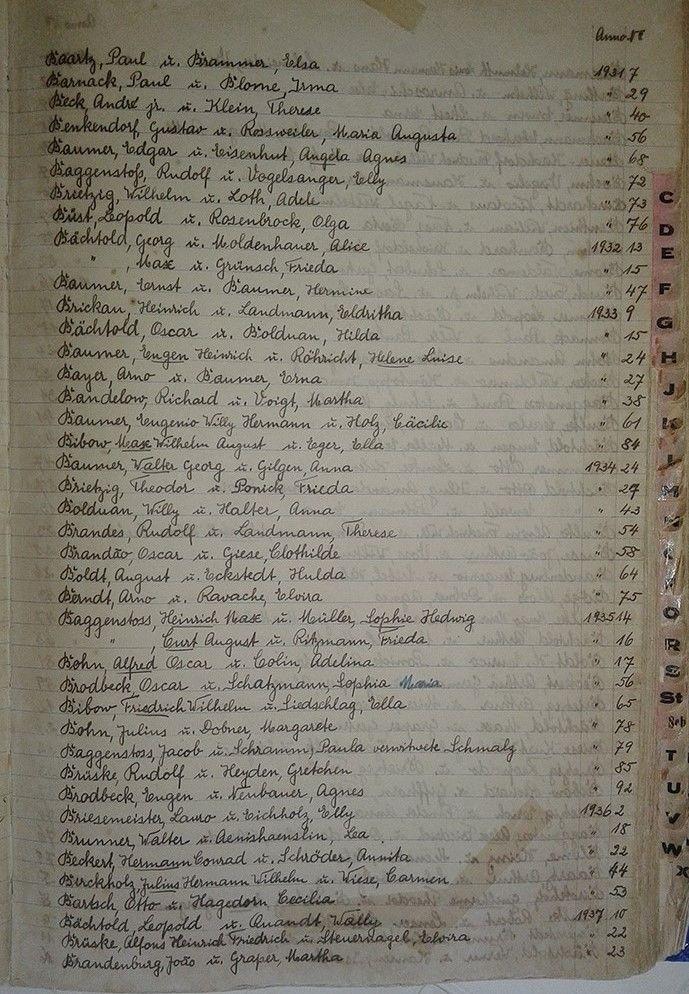 Anno. Nº
Baartz, Paul u. Brammer, Elsa 1931 7
Barnack, Paul u. Blome, Irma " 29
Beck, André jr. u. Klein, Therese " 40
Benkendorf, Gustav u. Rossweiler, Maria Augusta " 56
Baumer, Edgar u. Eisenhut, Angela Agnes " 68
Baggenstoß, Rudolf u. Vogelsanger, Elly " 72
Brietzig, Wilhelm u. Loth, Adele " 73
Büst, Leopold u. Rosenbrock, Olga " 76
Bächtold, Georg u. Moldenhauer, Alice 1932 13
" , Max u. Grünsch, Frieda " 15
Baumer, Ernst u. Baumer, Hermine " 47
Brickau, Heinrich u. Landmann, Eldritha 1933 9
Bächtold, Oscar u. Bolduan, Hilda " 15
Baumer, Eugen Heinrich u. Röhricht, Helene Luise " 24
Bayer, Arno u. Baumer, Erna " 27
Bandelow, Richard u. Voigt, Martha " 38
Baumer, Eugenio Willy Hermann u. Holz, Cäcilie " 61
Bibow, Max Wilhelm August u. Eger, Ella " 84
Baumer, Walter Georg u. Gilgen, Anna 1934 24
Brietzig, Theodor u. Ponick, Frieda " 27
Bolduan, Willy u. Halter, Anna " 43
Brandes, Rudolf u. Landmann, Therese " 54
Brandão, Oscar u. Giese, Clothilde " 58
Boldt, August u. Eckstedt, Hulda " 64
Berndt, Arno u. Ravache, Elvira " 75
Baggenstoss, Heinrich Max u. Müller, Sophie Hedwig 1935 14
" , Curt August u. Ritzmann, Frieda " 16
Bohn, Alfred Oscar u. Colin, Adelina " 17
Brodbeck, Oscar u. Schatzmann, Sophia Maria " 56
Bibow, Friedrich Wilhelm u. Liedschlag, Ella " 65
Bohn, Julius u. Dobner, Margarete " 78
Baggenstoss, Jacob u. Schramm, Paula verwitwete Schmalz " 79
Brüske, Rudolf u. Heyden, Gretchen " 85
Brodbeck, Eugen u. Neubauer, Agnes " 92
Briesemeister, Lauro u. Eichholz, Elly 1936 2
Brunner, Walter u. Aenishaenslin, Lea " 18
Beckert, Hermann Conrad u. Schröder, Annita " 22
Birckholz, Julius Hermann Wilhelm u. Wiese, Carmen " 44
Bartsch, Otto u. Hagedorn Cecilia " 53
Bächtold, Leopold u. Quandt, Wally 1937 10
Brüske, Alfons Heinrich Friedrich u. Steuernagel, Elvira " 22
Brandenburg, João u. Graper, Martha " 23
C
D
E
F
G
H
J
K
L
M
N
O
R
S
St
Sch
T
U
V
W
X